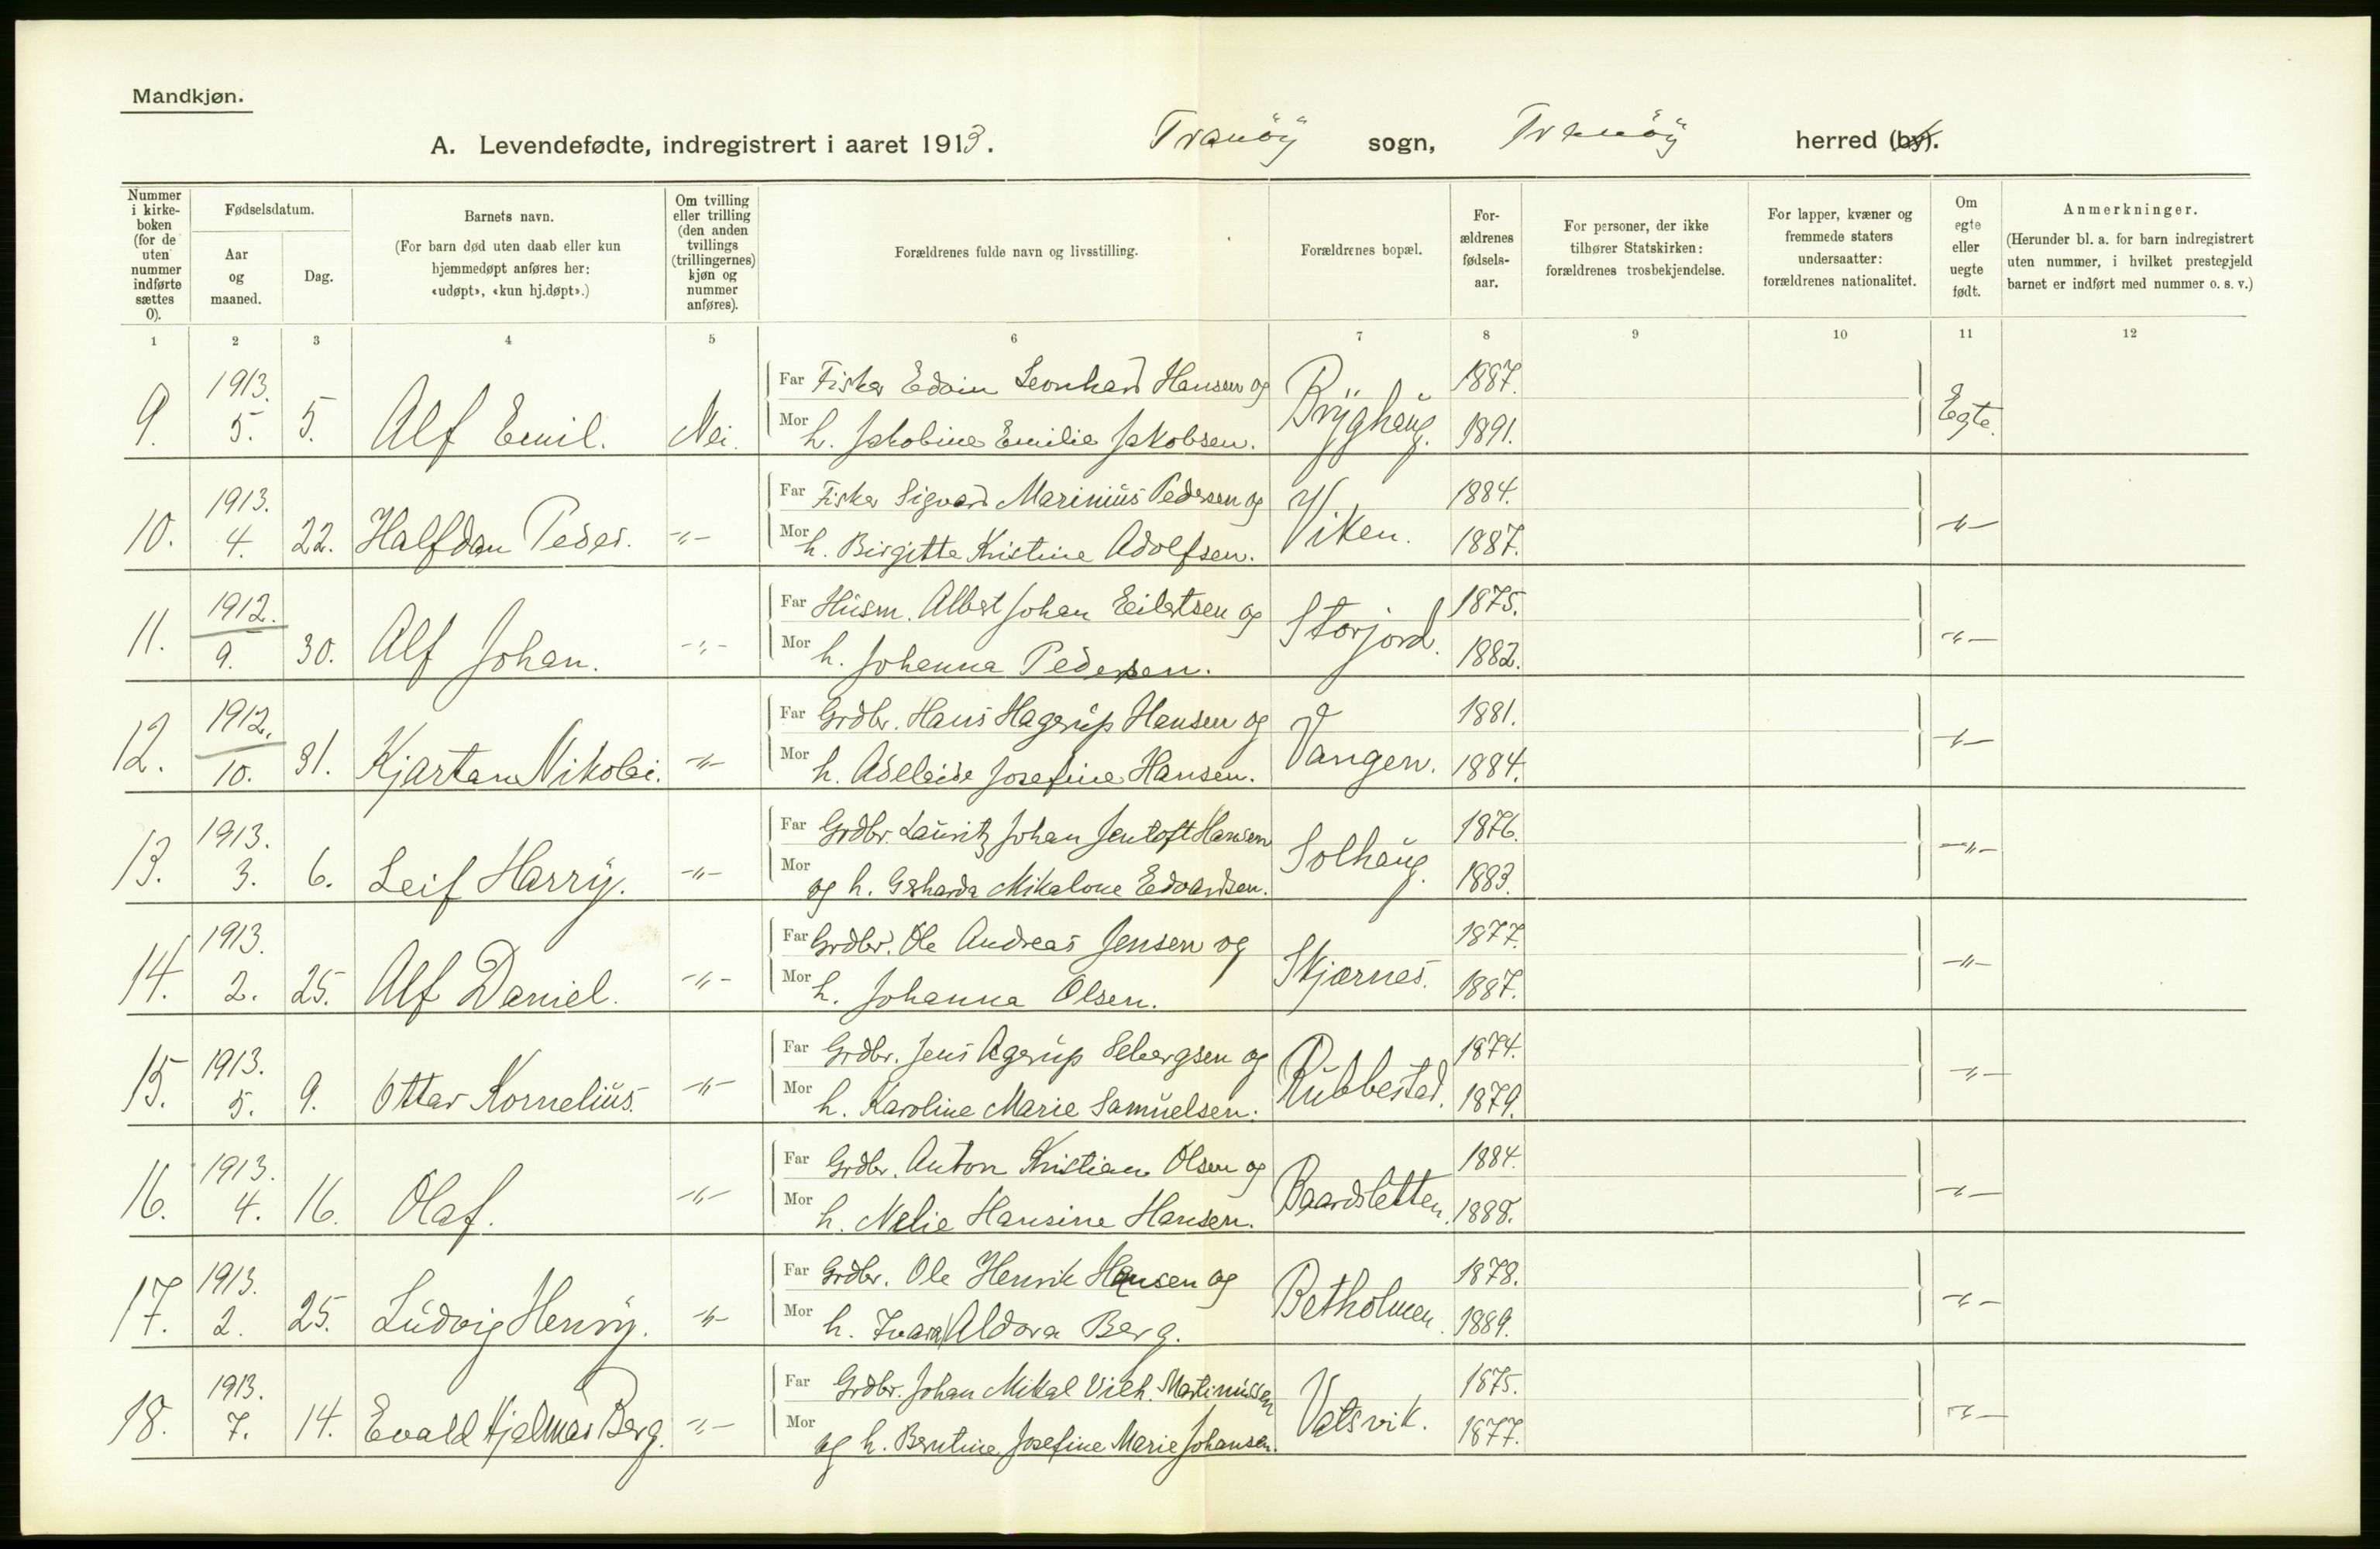 Mandkjøn.
A. Levendefødte, indregistrert i aaret 1913. Tranöÿ sogn, Tranöÿ herred (by).
Nummer i kirke-boken (for de uten nummer indførte sættes 0).
Fødselsdatum.
Aar og maaned.
Dag.
Barnets navn.
(For barn død uten daab eller kun hjemmedøpt anføres her: «udøpt», «kun hj.døpt».)
Om tvilling eller trilling (den anden tvillings (trillingernes) kjøn og nummer anføres).
Forældrenes fulde navn og livsstilling.
Forældrenes bopæl.
For-ældrenes fødsels-aar.
For personer, der ikke tilhører Statskirken: forældrenes trosbekjendelse.
For lapper, kvæner og fremmede staters undersaatter: forældrenes nationalitet.
Om egte eller uegte født.
Anmerkninger.
(Herunder bl. a. for barn indregistrert uten nummer, i hvilket prestegjeld barnet er indført med nummer o. s. v.)
1 2 3 4 5 6 7 8 9 10 11 12
9. 1913. 5. 5. Alf Emil. Nei. Far Fisker Edvin Leonhard Hansen og Bryghaug. 1887. Egte.
Mor h. Jakobine Emilie Jakobsen. 1891.
10. 1913. 4. 22. Halfdan Peder. -"- Far Fisker Sigvard Marinius Pedersen og Viken. 1884. -"-
Mor h. Birgitte Kristine Adolfsen. 1887.
11. 1912. 9. 30. Alf Johan. -"- Far Husm. Albert Johan Eilertsen og Storjord. 1875. -"-
Mor h. Johanna Pedersen. 1882.
12. 1912. 10. 31. Kjartan Nikolai. -"- Far Grdbr. Hans Hagerup Hansen og Vangen. 1881. -"-
Mor h. Adeleide Josefine Hansen. 1884.
13. 1913. 3. 6. Leif Harry. -"- Far Grdbr. Lauritz Johan Jentoft Hansen Solhaug. 1876. -"-
Mor og h. Gerharda Mikalone Edvardsen. 1883.
14. 1913. 2. 25. Alf Daniel. -"- Far Grdbr. Ole Andreas Jensen og Skjærnes. 1877. -"-
Mor h. Johanna Olsen. 1887.
15. 1913. 5. 9. Ottar Kornelius. -"- Far Grdbr. Jens Agerup Sebergsen og Rubbestad. 1874. -"-
Mor h. Karoline Marie Samuelsen. 1879.
16. 1913. 4. 16. Olaf. -"- Far Grdbr. Anton Kristian Olsen og Baardsletten. 1884. -"-
Mor h. Nelie Hansine Hansen. 1888.
17. 1913. 2. 25. Ludvig Henry. -"- Far Grdbr. Ole Henrik Hansen og Betholmen. 1878. -"-
Mor h. Ivara Aldora Berg. 1889.
18. 1913. 7. 14. Evald Hjalmar Berg. -"- Far Grdbr. Johan Mikal Vilh. Martinussen Vatsvik. 1875. -"-
Mor og h. Berntine Josefine Marie Johansen. 1877.